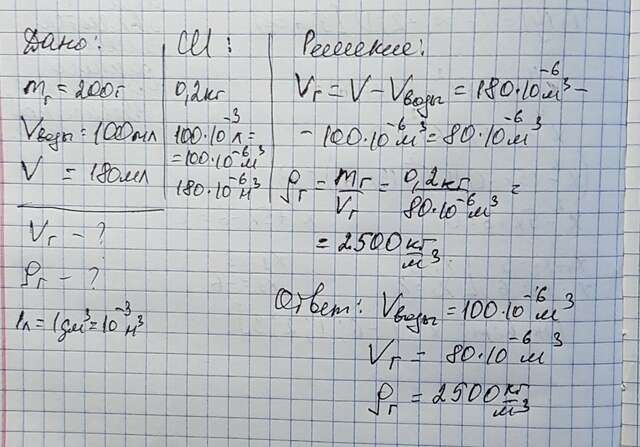 Дано:
m г = 200г
Vводы = 100мл
V = 180мл
Vг - ?
ρг - ?
1л = 1дм³ = 10⁻³ м³
СИ:
0,2кг
100·10⁻³ л =
= 100·10⁻⁶ м³
180·10⁻⁶ м³
Решение:
Vг = V - Vводы = 180·10⁻⁶ м³ -
- 100·10⁻⁶ м³ = 80·10⁻⁶ м³
ρг = mг/Vг = 0,2кг/80·10⁻⁶ м³ =
= 2500 кг/м³.
Ответ: Vводы = 100·10⁻⁶ м³
Vг - 80·10⁻⁶ м³
ρг = 2500 кг/м³